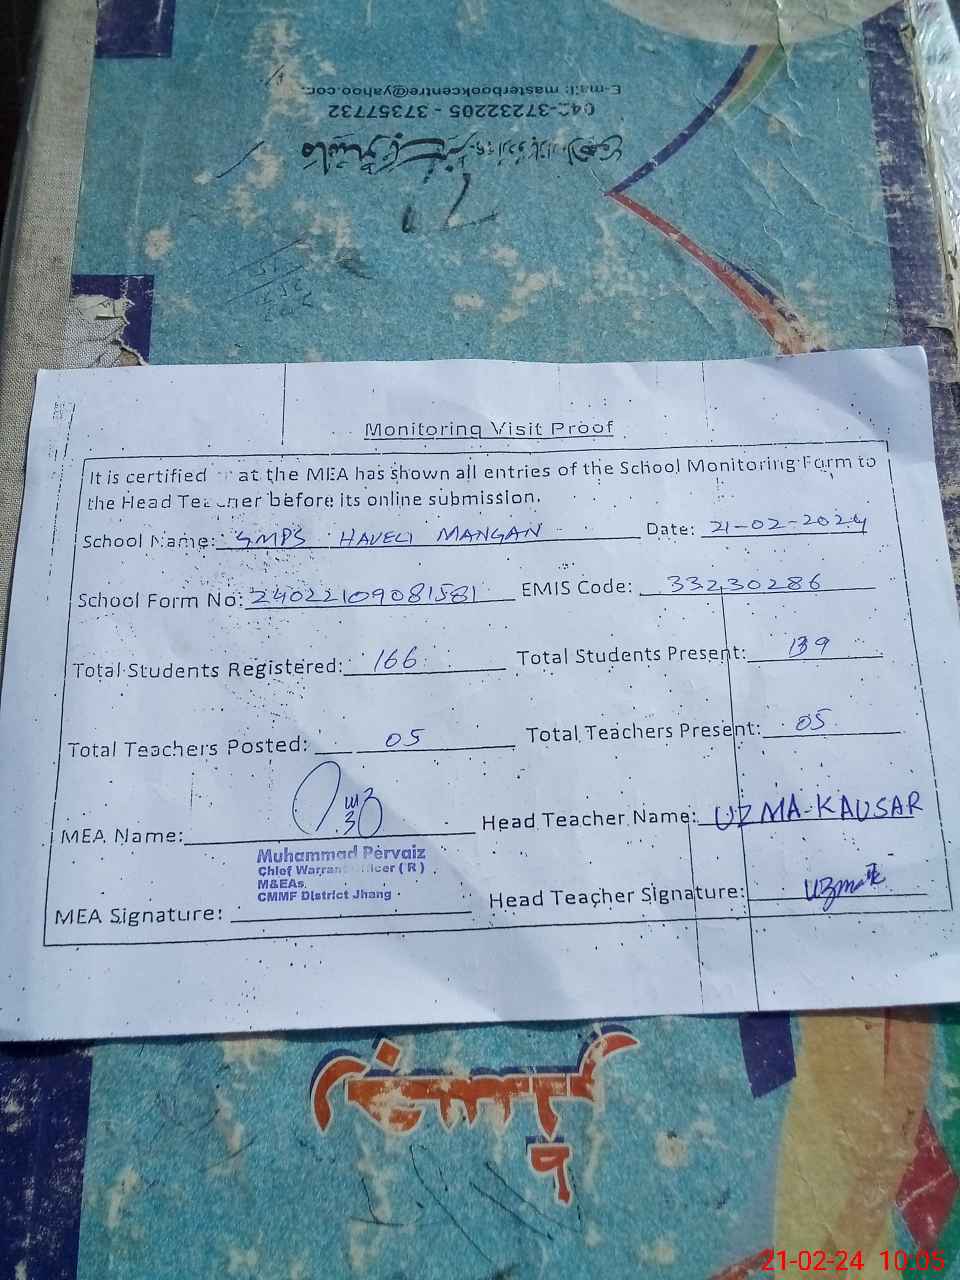 E-mail: masterbookcentre@yahoo.com
042-37232205 - 37357732
Monitoring Visit Proof
It is certified at the MEA has shown all entries of the School Monitoring Form to
the Head Teacher before its online submission.
School Name: GMPS HAVELI MANGAN Date: 21-02-2024
School Form No: 24022109081581 EMIS Code: 33230286
Total Students Registered: 166 Total Students Present: 139
Total Teachers Posted: 05 Total Teachers Present: 05
MEA Name: Head Teacher Name: UZMA-KAUSAR
Muhammad Pervaiz
Chief Warrant Officer (R)
M&EAs,
CMMF District Jhang
MEA Signature: Head Teacher Signature:
21-02-24 10:05